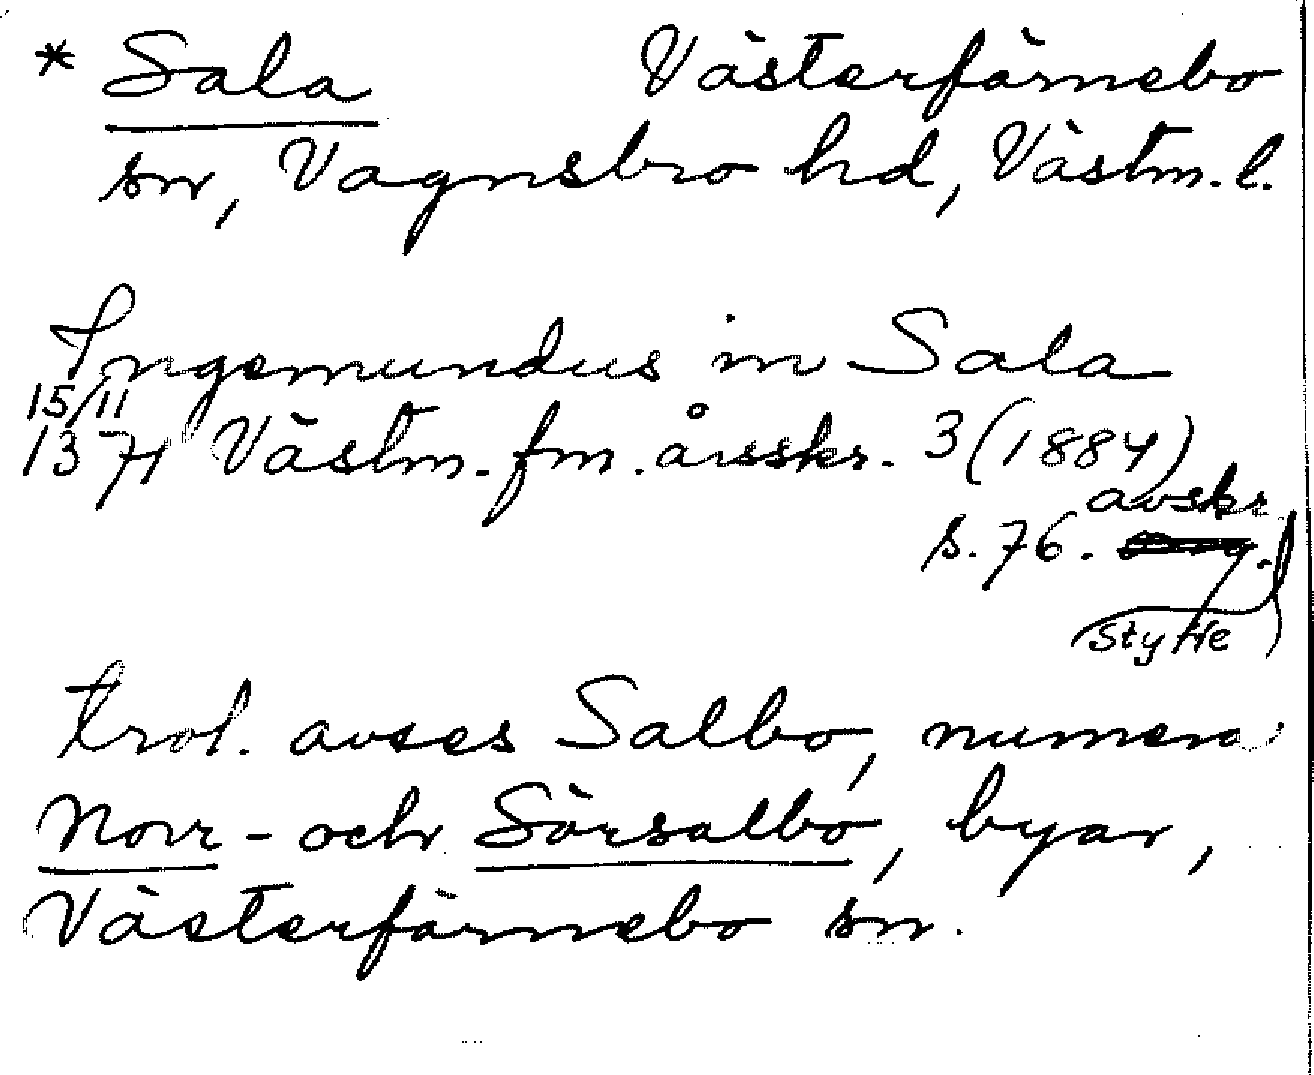 * Sala Västerfärnebo
sn, Vagnsbro hd, Västm. l.
Ingemundus in Sala
15/11
1371 Västm. fm. årsskr. 3 (1884)
avskr
s. 76.
Styffe
trol. avses Salbo, numera
Norr- och Sörsalbo, byar,
Västerfärnebo sn.